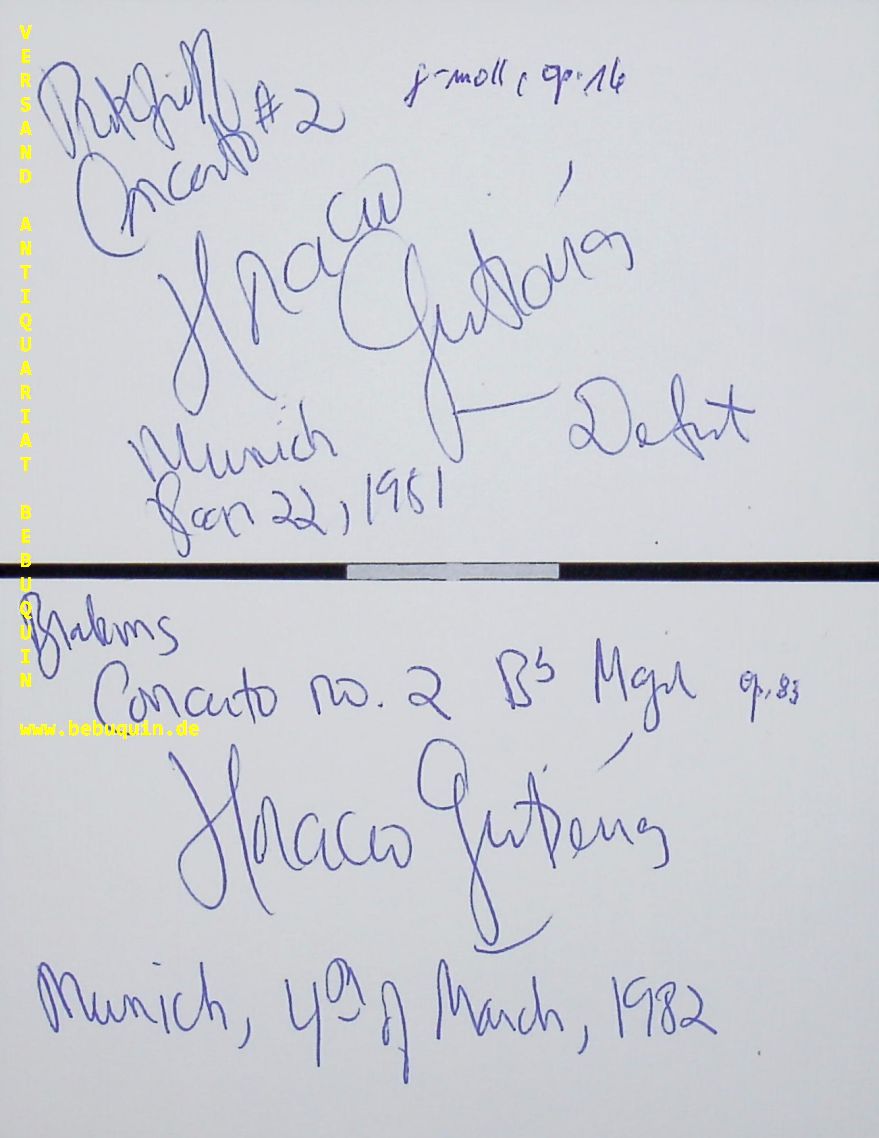 VERSAND ANTIQUARIAT BEBUQUIN
www.bebuquin.de
Prokofieff g-moll, op. 16
Concerto #2
Horacio
Gutiérrez
Debut
Munich
Jan 22, 1981
Brahms
Concerto no. 2 B♭ Major op. 83
Horacio Gutiérrez
Munich, 4th of March, 1982